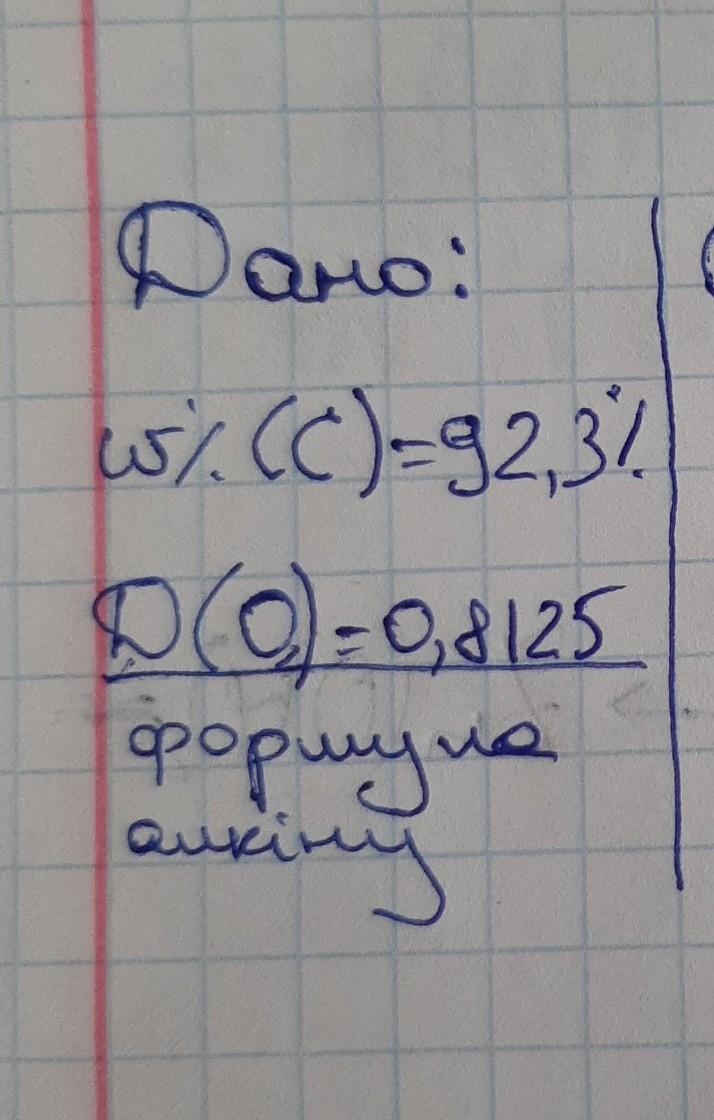 Дано:
w%(C)=92,3%
D(O₂)=0,8125
формула
алкіну